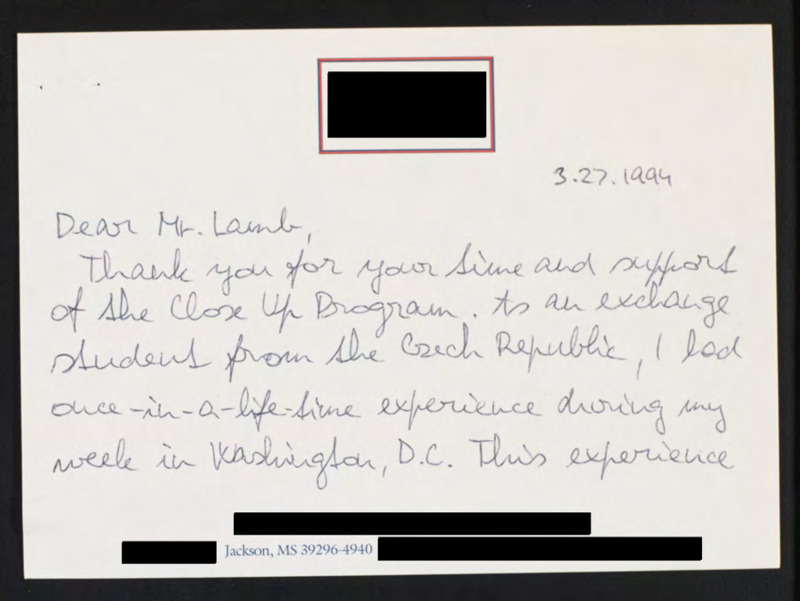 3.27.1994
Dear Mr. Lamb,
Thank you for your time and support
of the Close Up Program. As an exchange
student from the Czech Republic, I had
once-in-a-life-time experience during my
week in Washington, D.C. This experience
Jackson, MS 39296-4940